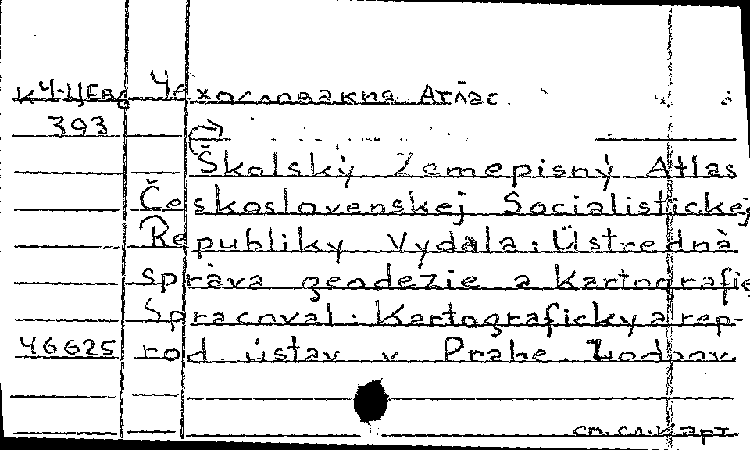 КЧ-ЦЕв Чехословакия Атлас
393
Školský Zemepisný Atlas
Československej Socialistickej
Republiky Vydala: Ústredná
správa geodézie a Kartografie
Spracoval: Kartografický a rep-
46625 rod ústav v Prahe
см.сл.карт